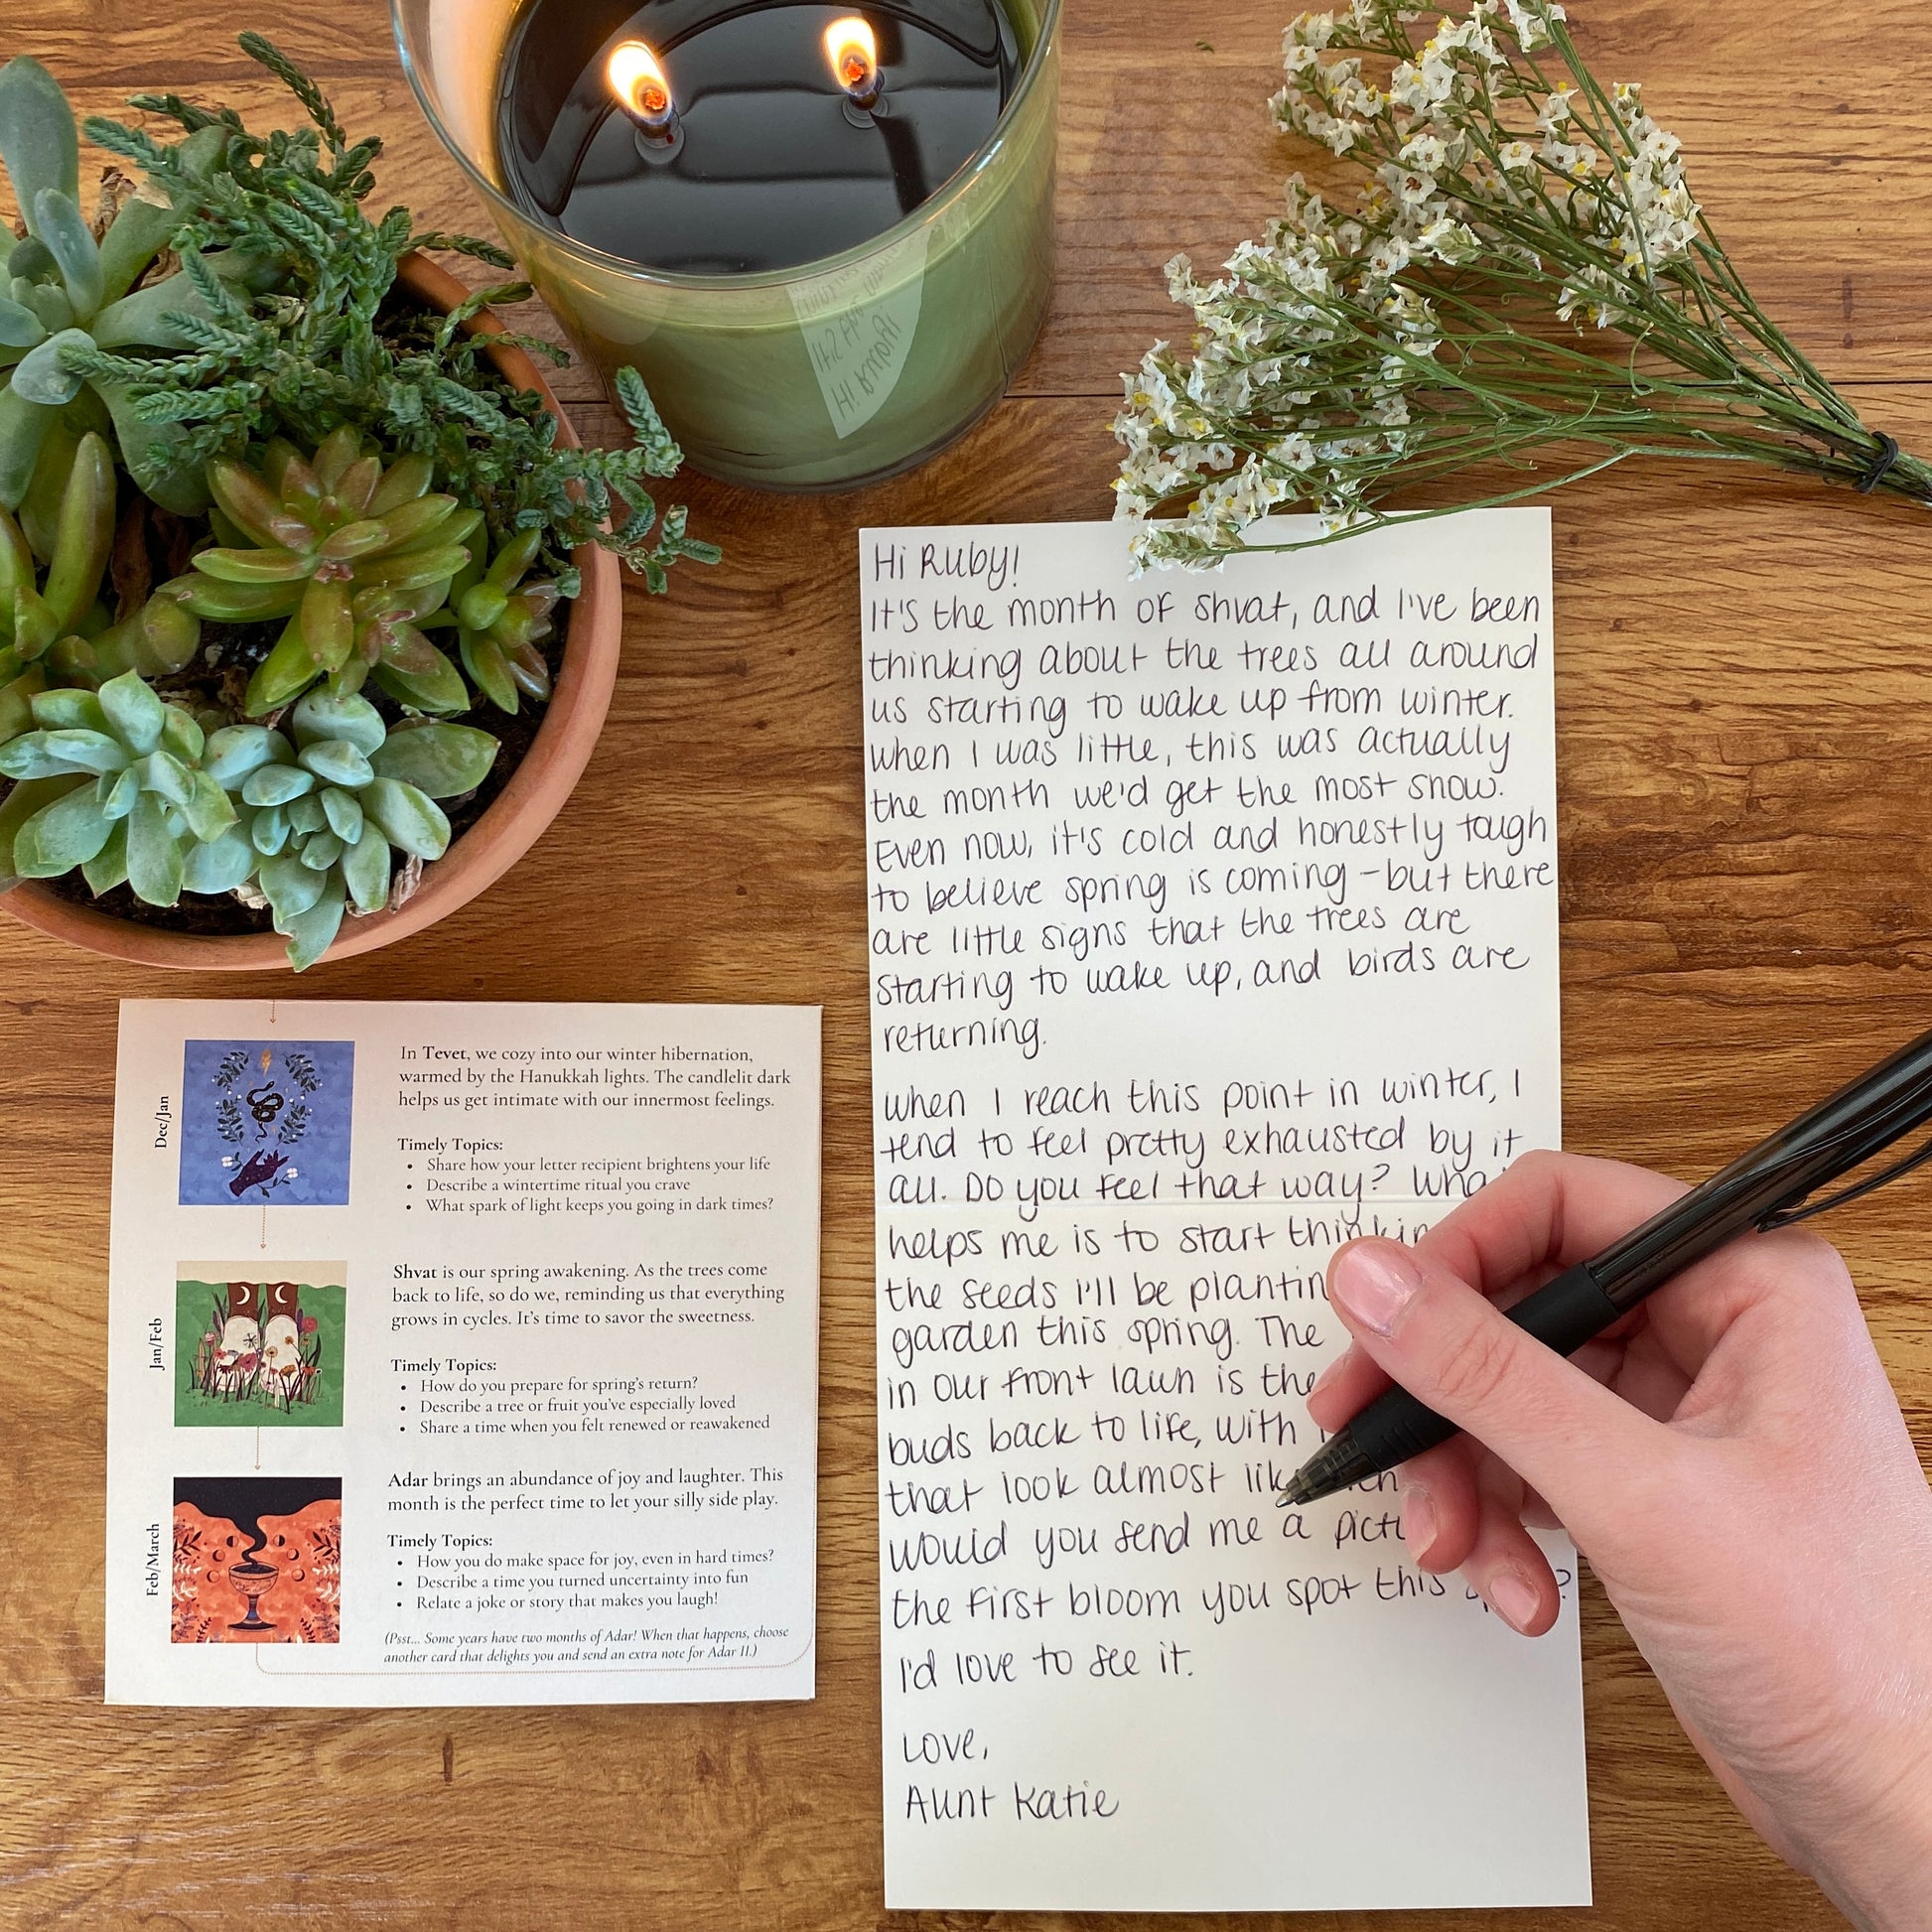 Hi Ruby!
It's the month of Shvat, and I've been
thinking about the trees all around
us starting to wake up from winter.
When I was little, this was actually
the month we'd get the most snow.
Even now, it's cold and honestly tough
to believe spring is coming - but there
are little signs that the trees are
starting to wake up, and birds are
returning.
When I reach this point in winter, I
tend to feel pretty exhausted by it
all. Do you feel that way?
helps me is to start
the seeds I'll be
garden this spring. The
in our front lawn is the
buds back to life, with
that look almost
would you send me a
the first bloom you spot this
I'd love to see it.
Love,
Aunt Katie
Dec/Jan
In Tevet, we cozy into our winter hibernation,
warmed by the Hanukkah lights. The candlelit dark
helps us get intimate with our innermost feelings.
Timely Topics:
• Share how your letter recipient brightens your life
• Describe a wintertime ritual you crave
• What spark of light keeps you going in dark times?
Jan/Feb
Shvat is our spring awakening. As the trees come
back to life, so do we, reminding us that everything
grows in cycles. It's time to savor the sweetness.
Timely Topics:
• How do you prepare for spring's return?
• Describe a tree or fruit you've especially loved
• Share a time when you felt renewed or reawakened
Feb/March
Adar brings an abundance of joy and laughter. This
month is the perfect time to let your silly side play.
Timely Topics:
• How you do make space for joy, even in hard times?
• Describe a time you turned uncertainty into fun
• Relate a joke or story that makes you laugh!
(Psst... Some years have two months of Adar! When that happens, choose
another card that delights you and send an extra note for Adar II.)